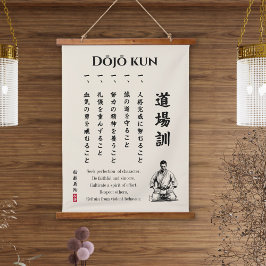 DŌJŌ KUN
道場訓
一、人格完成に努むること
一、誠の道を守ること
一、努力の精神を養うこと
一、礼儀を重んずること
一、血気の勇を戒むること
Seek perfection of character,
Be faithful and sincere,
Cultivate a spirit of effort,
Respect others,
Refrain from violent behavior.